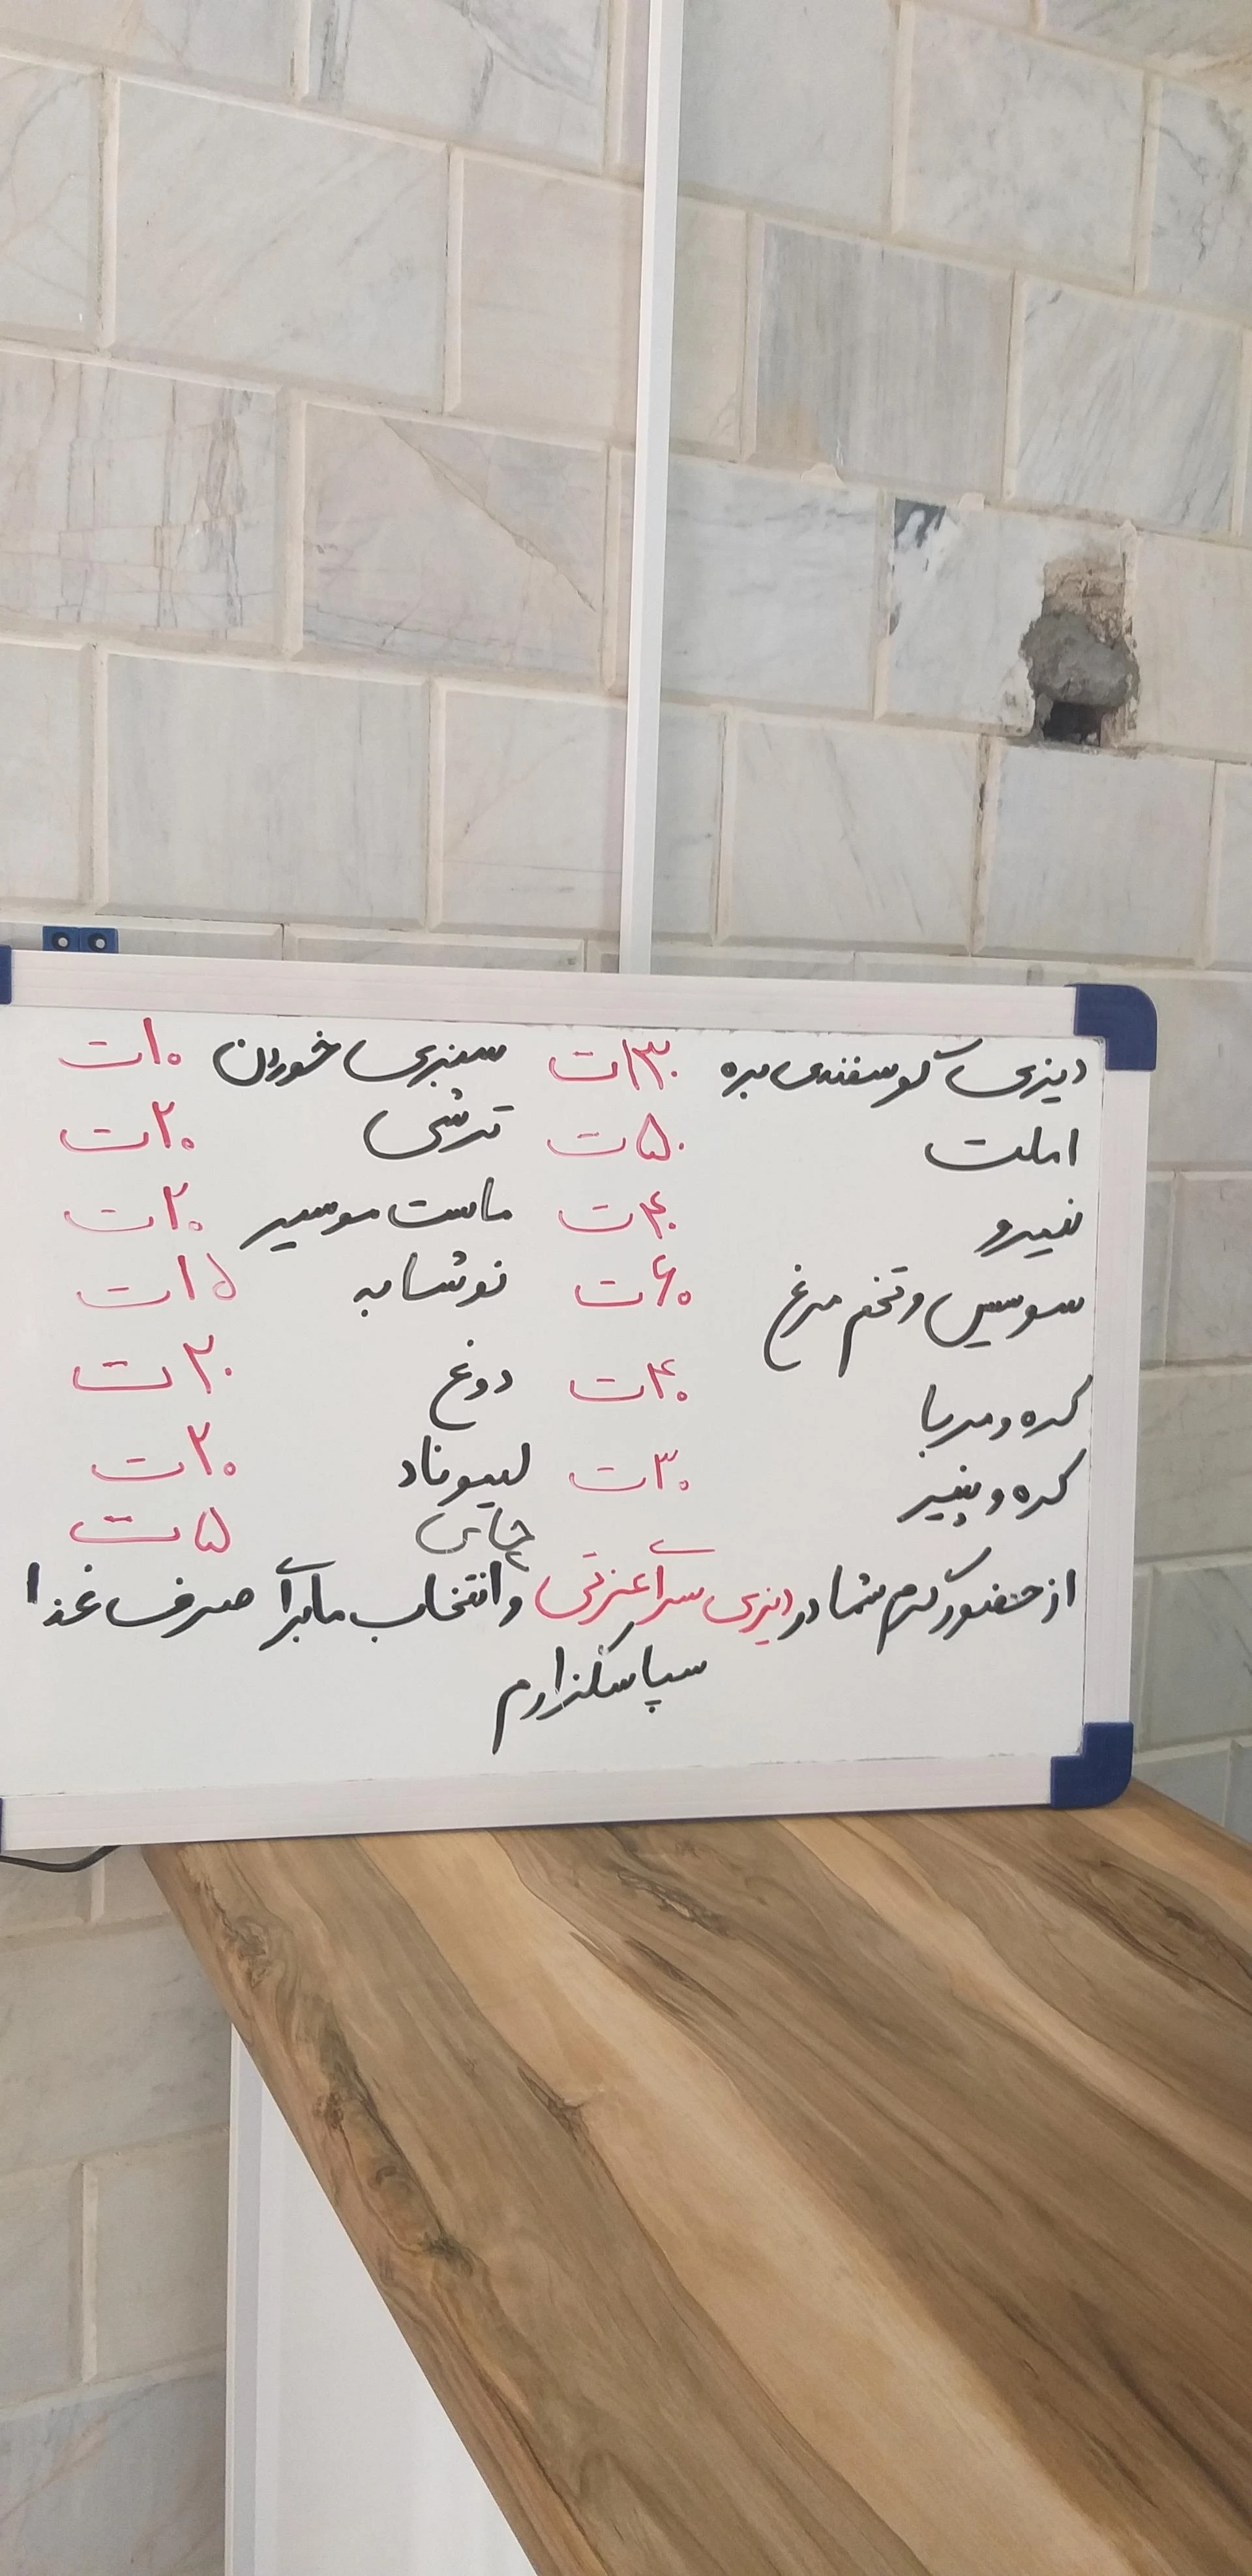 دیزی گوسفندی بره ۱۳۰ت سبزی خوردن ۱۰ت
املت ۵۰ت ترشی ۲۰ت
نیمرو ۴۰ت ماست موسیر ۲۰ت
سوسیس و تخم مرغ ۶۰ت نوشابه ۱۵ت
کره و مربا ۴۰ت دوغ ۲۰ت
کره و پنیر ۳۰ت لیموناد ۲۰ت
چای ۵ت
از حضور گرم شما در دیزی سرآ عزتی و انتخاب ما برآ صرف غذا
سپاسگزارم